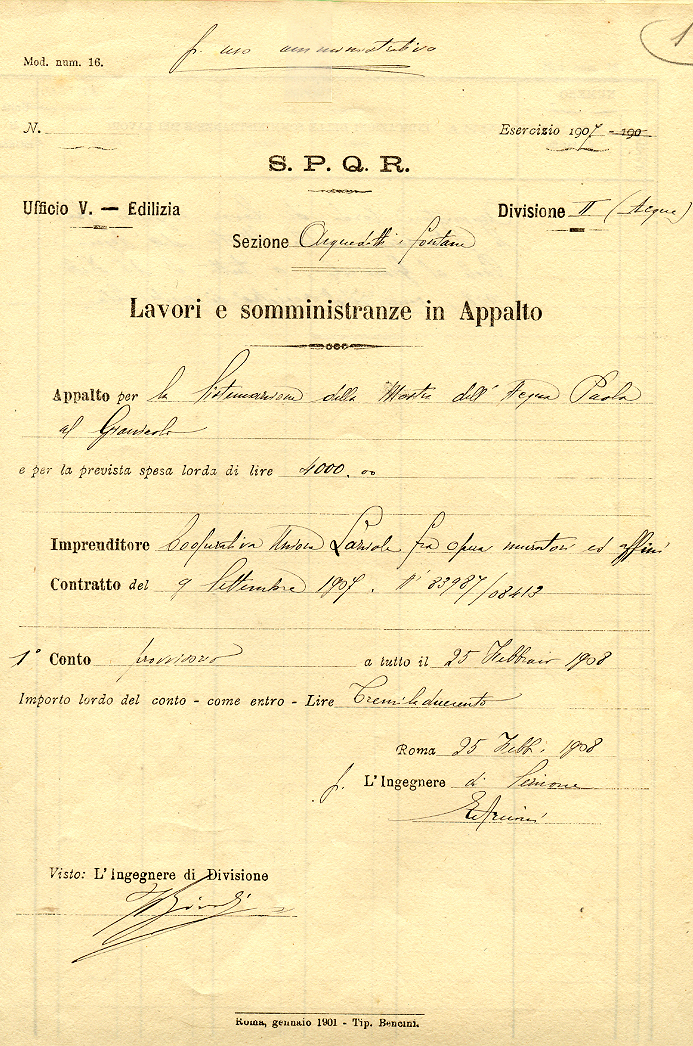 p. uso amministrativo
1
Mod. num. 16.
N.
Esercizio 1907 - 190
S. P. Q. R.
Ufficio V. — Edilizia
Divisione II (Acque)
Sezione Acquedotti e fontane
Lavori e somministranze in Appalto
Appalto per la Sistemazione della Mostra dell'Acqua Paola
al Gianicolo
e per la prevista spesa lorda di lire 4000.00
Imprenditore Cooperativa Unione Laziale fra operai muratori ed affini
Contratto del 9 Settembre 1907. N° 83987/08413
1° Conto provvisorio a tutto il 25 Febbraio 1908
Importo lordo del conto - come entro - Lire Tremiladuecento
Roma 25 Febb. 1908
p. L'Ingegnere di Sezione
Visto: L'Ingegnere di Divisione
Roma, gennaio 1901 - Tip. Bencini.